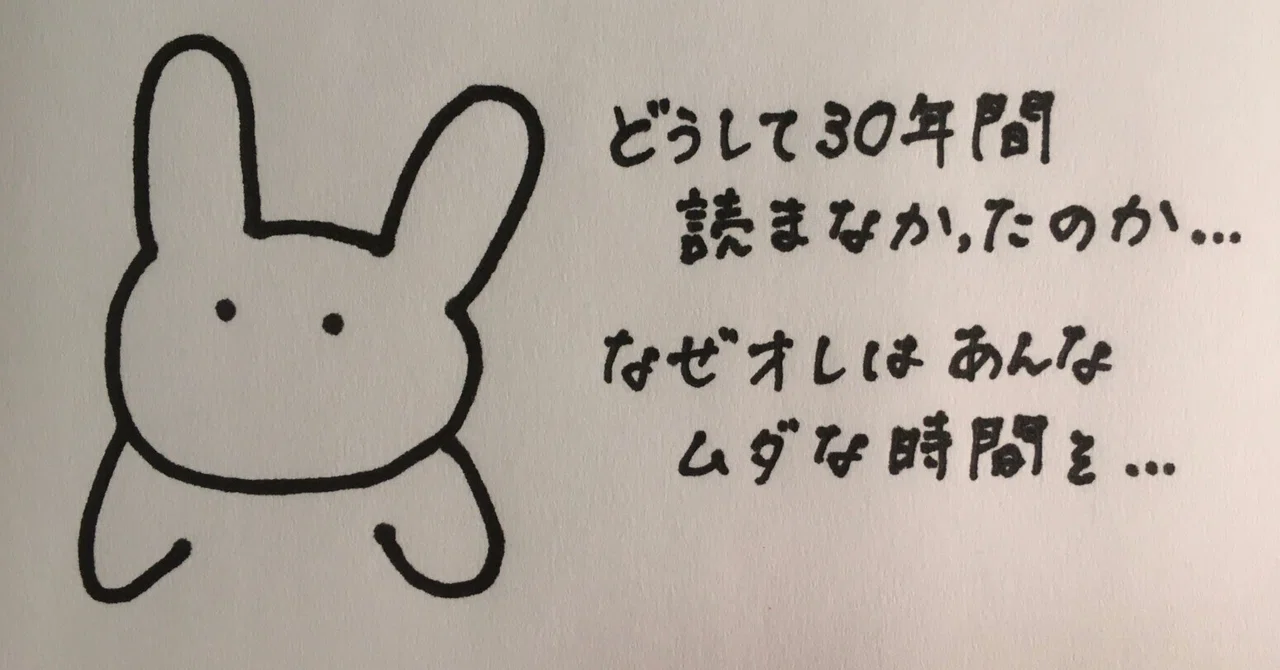 どうして30年間
読まなかったのか...
なぜオレは あんな
ムダな時間を...